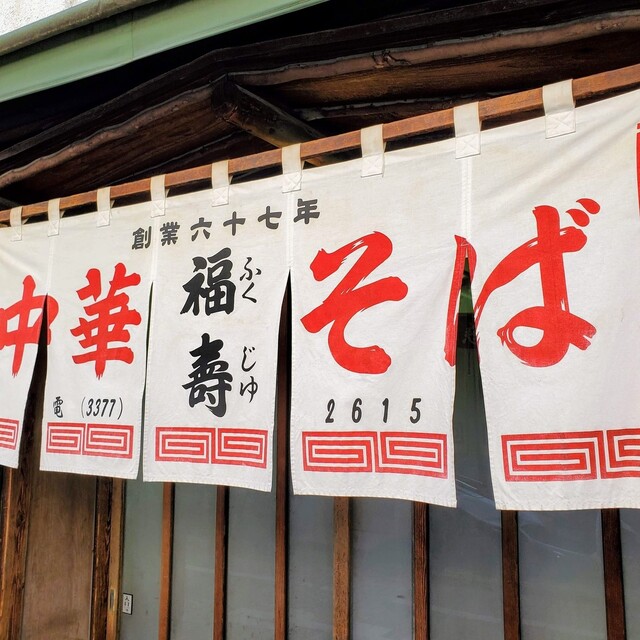 創業六十七年
中華そば
福寿
ふくじゅ
電 (3377) 2615